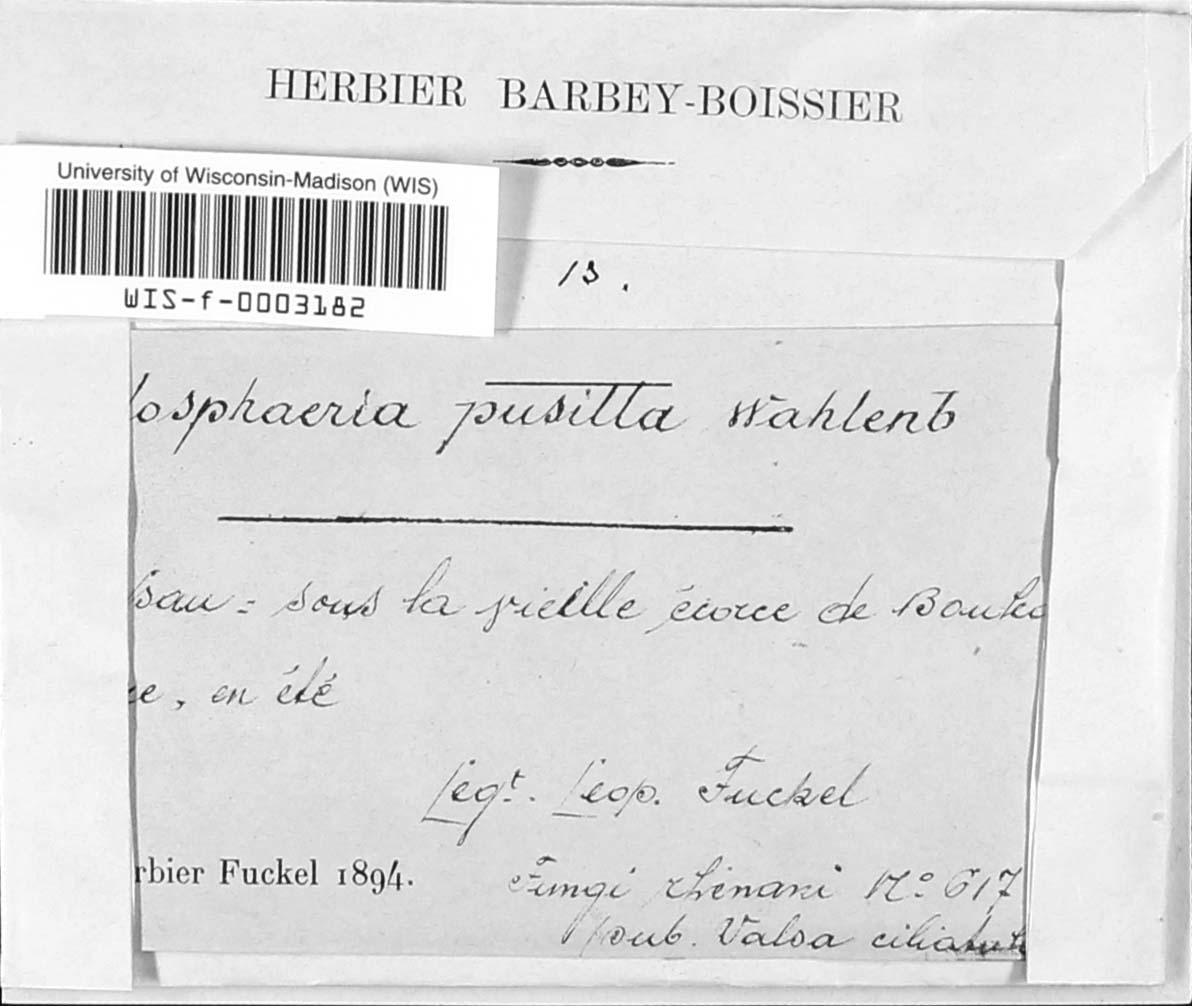 HERBIER BARBEY-BOISSIER
University of Wisconsin-Madison (WIS)
WIS-f-0003182
13.
losphaeria pusilla Wahlenb
sau = sous la vieille écorce de Boule
, en été
Legt. Leop. Fuckel
rbier Fuckel 1894.
Fungi rhenani No 617
sub. Valsa